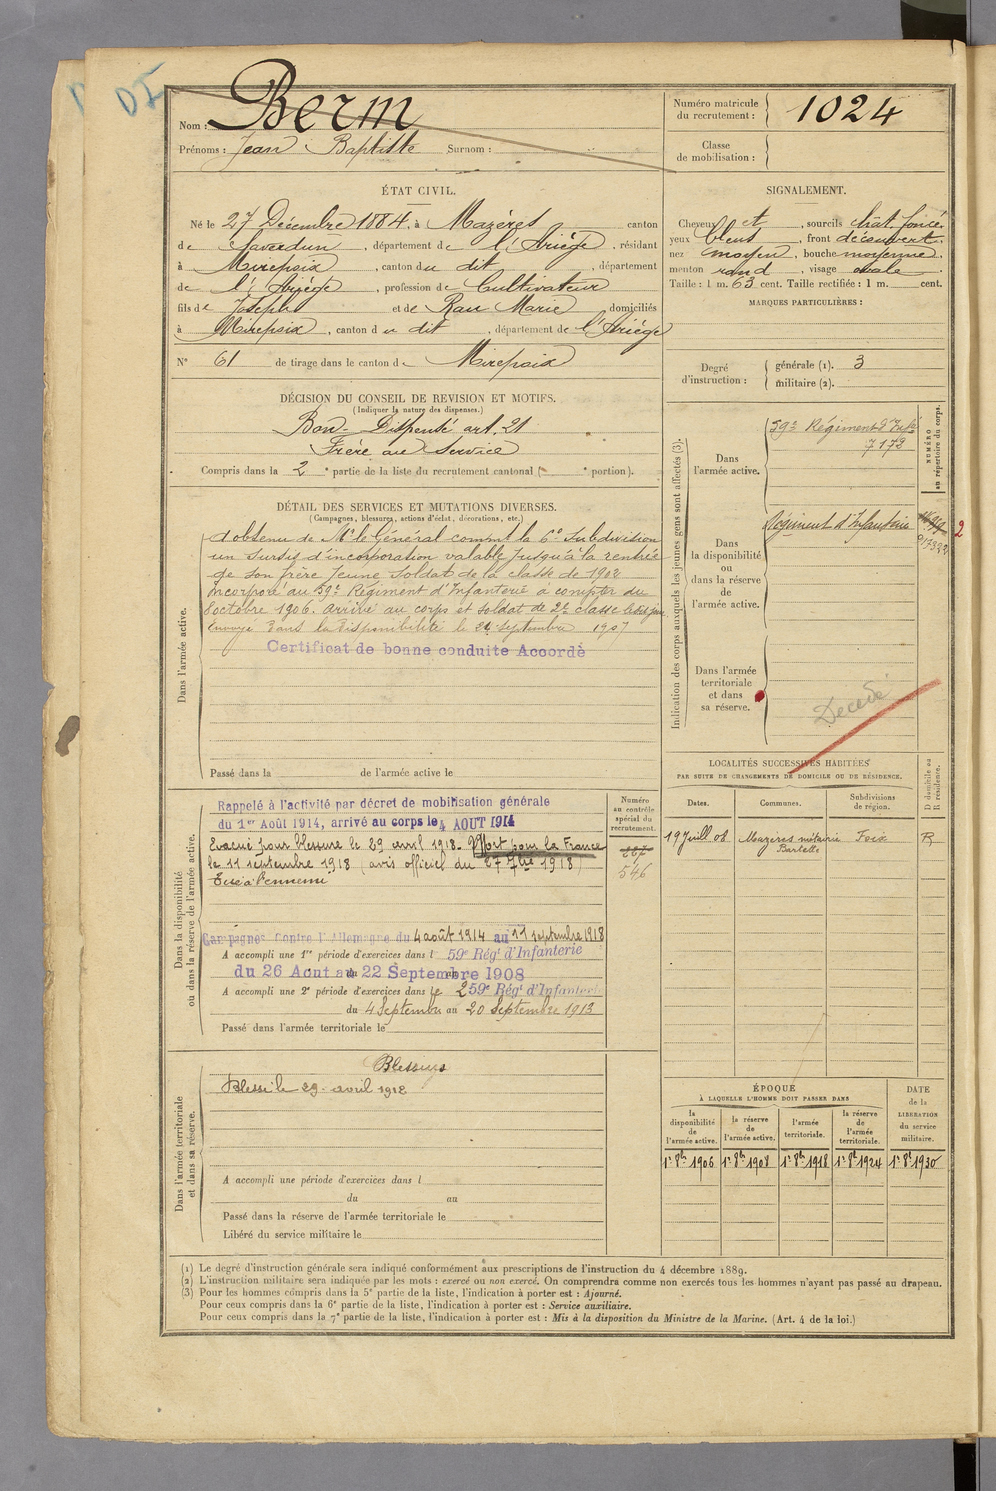 DI
Nom : Berm
Prénoms : Jean Baptiste Surnom :
Numéro matricule du recrutement : 1024
Classe de mobilisation :
ÉTAT CIVIL.
Né le 27 Décembre 1884, à Mazères canton
de Saverdun, département de l'Ariège, résidant
à Mirepoix, canton du dit, département
de l'Ariège, profession de Cultivateur
fils de Joseph et de Rau Marie, domiciliés
à Mirepoix, canton du dit, département de l'Ariège
N° 61 de tirage dans le canton de Mirepoix
SIGNALEMENT.
Cheveux et, sourcils chât. foncé.
yeux bleus, front découvert.
nez moyen, bouche moyenne,
menton rond, visage ovale.
Taille : 1 m. 63 cent. Taille rectifiée : 1 m. cent.
MARQUES PARTICULIÈRES :
Degré d'instruction : générale (1). 3
militaire (2).
DÉCISION DU CONSEIL DE REVISION ET MOTIFS.
(Indiquer la nature des dispenses.)
Bon - Dispensé art. 21
Frère au Service
Compris dans la 2e partie de la liste du recrutement cantonal ( e portion).
DÉTAIL DES SERVICES ET MUTATIONS DIVERSES.
(Campagnes, blessures, actions d'éclat, décorations, etc.)
Dans l'armée active.
A obtenu de Mr le Général commt la 6e Subdivision
un sursis d'incorporation valable jusqu'à la rentrée
de son frère Jeune Soldat de la classe de 1902
Incorporé au 59e Régiment d'Infanterie à compter du
8 octobre 1906. Arrivé au corps et soldat de 2e classe le dit jour
Envoyé dans la disponibilité le 24 septembre 1907
Certificat de bonne conduite Accordé
Passé dans la de l'armée active le
Indication des corps auxquels les jeunes gens sont affectés (3).
NUMÉRO au répertoire du corps.
Dans l'armée active.
59e Régiment d'Infie
7172
Dans la disponibilité ou dans la réserve de l'armée active.
Régiment d'Infanterie
2
Dans l'armée territoriale et dans sa réserve.
Décédé
LOCALITÉS SUCCESSIVES HABITÉES
PAR SUITE DE CHANGEMENTS DE DOMICILE OU DE RÉSIDENCE.
Dates. Communes. Subdivisions de région. D domicile ou R résidence.
19 Juill 08 Mazères métairie Foix R
Barbette
Dans la disponibilité ou dans la réserve de l'armée active.
Numéro au contrôle spécial du recrutement.
546
Rappelé à l'activité par décret de mobilisation générale
du 1er Août 1914, arrivé au corps le 4 AOUT 1914
Evacué pour blessure le 29 avril 1918. Mort pour la France
le 11 septembre 1918 (avis officiel du 27 7bre 1918)
Tué à l'ennemi
Campagnes Contre l'Allemagne du 4 août 1914 au 11 septembre 1918
A accompli une 1re période d'exercices dans l 59e Régt d'Infanterie
du 26 Aout au 22 Septembre 1908
A accompli une 2e période d'exercices dans le 259e Régt d'Infanterie
du 4 Septembre au 20 Septembre 1913
Passé dans l'armée territoriale le
Dans l'armée territoriale et dans sa réserve.
Blessures
Blessé le 29 avril 1918
A accompli une période d'exercices dans l
du au
Passé dans la réserve de l'armée territoriale le
Libéré du service militaire le
ÉPOQUE
À LAQUELLE L'HOMME DOIT PASSER DANS
la disponibilité de l'armée active. la réserve de l'armée active. l'armée territoriale. la réserve de l'armée territoriale. DATE de la LIBÉRATION du service militaire.
1r 8bre 1906 1r 8bre 1908 1r 8bre 1918 1r 8bre 1924 1r 8bre 1930
(1) Le degré d'instruction générale sera indiqué conformément aux prescriptions de l'instruction du 4 décembre 1889.
(2) L'instruction militaire sera indiquée par les mots : exercé ou non exercé. On comprendra comme non exercés tous les hommes n'ayant pas passé au drapeau.
(3) Pour les hommes compris dans la 5e partie de la liste, l'indication à porter est : Ajourné.
Pour ceux compris dans la 6e partie de la liste, l'indication à porter est : Service auxiliaire.
Pour ceux compris dans la 7e partie de la liste, l'indication à porter est : Mis à la disposition du Ministre de la Marine. (Art. 4 de la loi.)